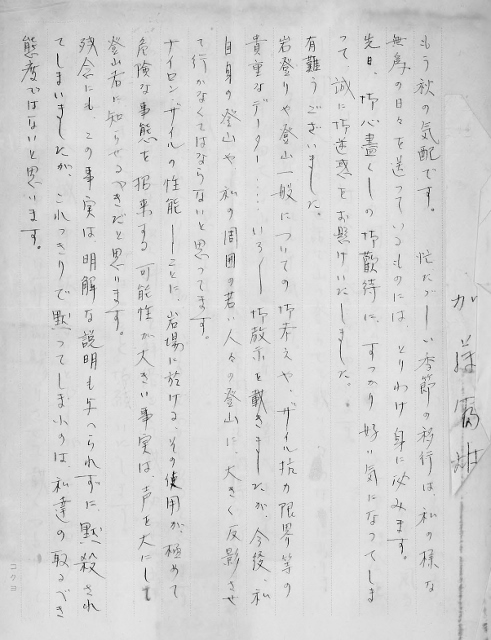 もう秋の気配です。 慌たゞしい季節の移行は、私の様な
無為の日々を送っているものには、とりわけ身に沁みます。
先日、御心盡くしの御歓待に、すっかり好い気になってしま
って、誠に御迷惑をお懸けいたしました。
有難うございました。
岩登りや登山一般についての御考えや、ザイル抗力限界等の
貴重なデーター……いろ〳〵御教示を戴きましたが、今後、私
自身の登山や、私の周囲の若い人々の登山に、大きく反影させ
て行かなくてはならないと思ってます。
ナイロンザイルの性能——ことに、岩場に於ける、その使用が、極めて
危険な事態を招来する可能性が大きい事実は声を大にして
登山者に知らせるべきだと思います。
残念にも、この事実は明解な説明も与へられずに、黙殺され
てしまいましたが、これっきりで黙ってしまふのは、私達の取るべき
態度ではないと思います。
コクヨ